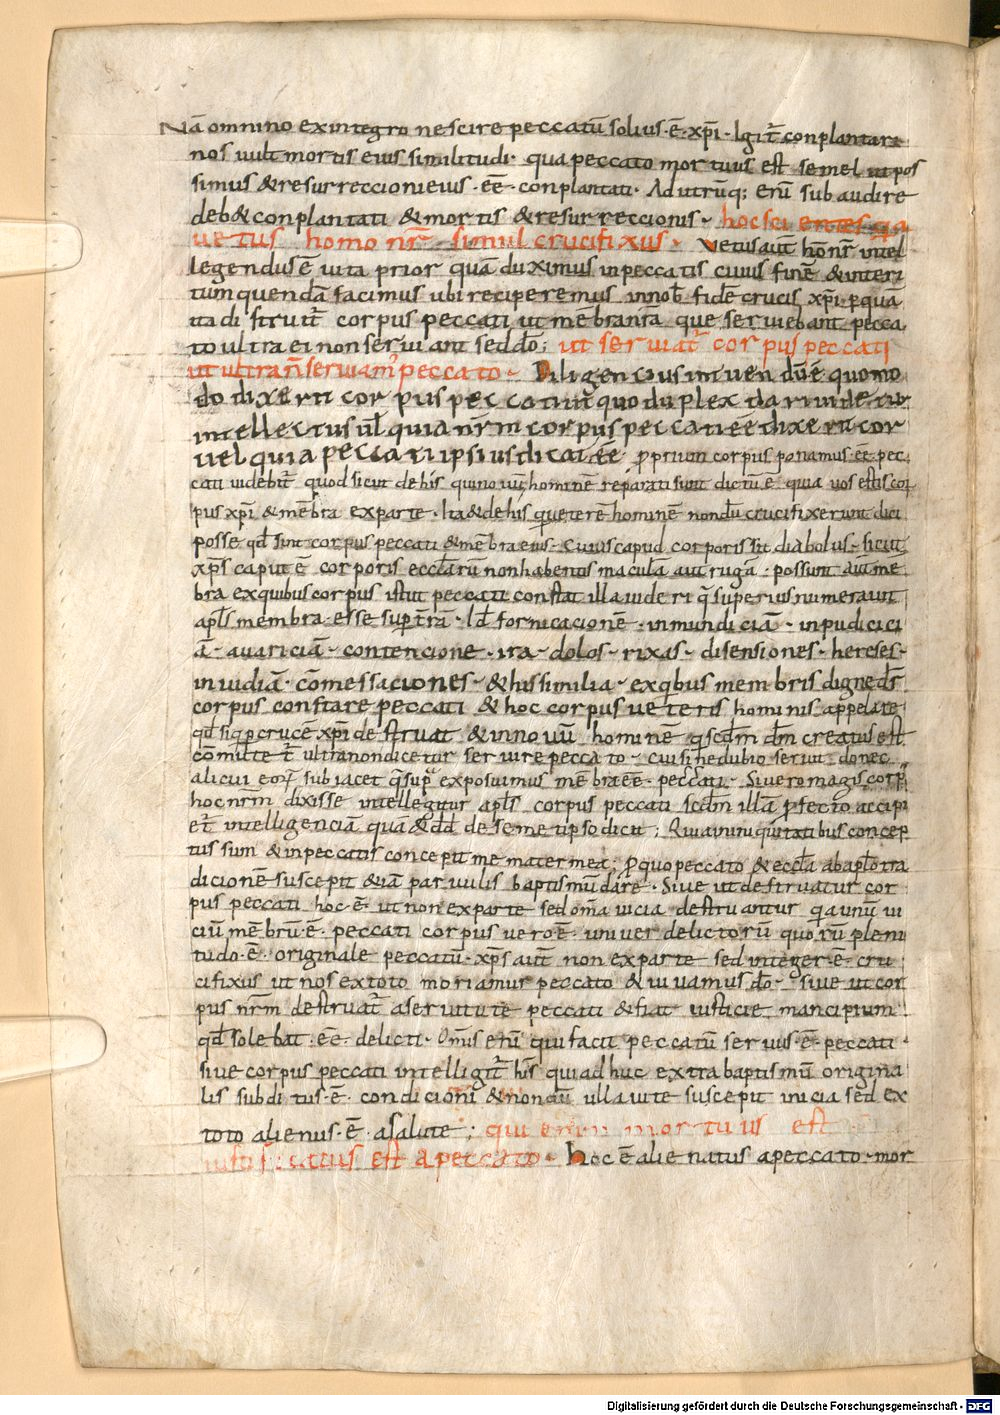 Nā omnino exintegro nescire peccatū solius · ē · xp̄i · Igit̄ conplantare
nos vult mortis eius similitudi · qua peccato mortuus est semel ut pos
simus & resurreccionieius · ēē · conplantati · Ad utrūq; enī subaudire
deb& conplantati & mortis & resurreccionis · hoc scientes qa
uetus homo nr̄ simul crucifixus · Vetus aut̄ ho nr̄ intel
legendus ē uita prior quā duximus inpeccatis cuius finē & interi
tum quendā facimus ubi reciperemus innob̄ fidē crucis xp̄i · p quā
ita distruit̄ corpus peccati ut mēbra nr̄a que serviebant pecca
to ultra ei non serviant sed dō; ut serviat̄ corpus peccati
ut ultra n̄ serviam' peccato · Diligencius invendū ē quomo
do dixerit corpus peccati ut̄ quo duplex dari uidetur
intellectus ul̄ quia nr̄m corpus peccati ēē dixerit cor
vel quia peccati ipsius dicat ēē · p̄prium corpus ponamus ēē pec
cati uidebit̄ quod sicut de his qui novū hominē reparati sunt dictū ē quia vos estis cor
pus xp̄i & mēbra exparte · Ita & de his q ueterē hominē nondū crucifixerunt dici
posse qd̄ sint corpus peccati & mēbra eius · Cuius capud corporis sit diabolus · sicut
xp̄s caput ē corporis eccl̄arū non habentis maculā aut rugā · possunt aut̄ me
bra exquibus corpus istut peccati constat illa uideri q̄ superius numeravit
apl̄s membra · esse sup tr̄ā · Id̄ fornicacionē · inmundiciā · inpudicici
ā · avariciā · contencione · ira · dolos · rixas · disensiones · hereses ·
invidiā · cōmessaciones · & his similia · ex qbus membris digne dr̄
corpus constare peccati & hoc corpus ueteris hominis appelare
qd̄ siq p crucē xp̄i destruat & innovū homine q scd̄m dm̄ creatus est
ultra non dicetur servire peccato · cui sine dubio servit donec
alicui eoꝝ subiacet q̄ sup̄ exposuimus mēbra ēē · peccati · Si vero magis corp
hoc nr̄m dixisse intellegitur apl̄s corpus peccati scd̄m illā p̄fecto accipi
et̄ intelligenciā quā & dd̄ de semetipso dicit; Qui in iniquitatibus concep
tus sum & inpeccatis concepit me mater mea; p̄ quo peccato & eccl̄a ab apl̄o tra
dicionē suscepit etiā parvulis baptismū dare · Sive ut destruatur cor
pus peccati hoc · ē · ut non exparte sed om̄ia vicia destruantur q̄a unū vi
ciū mēbrū · ē · peccati corpus vero · ē · univer delictorū quorū pleni
tudo · ē · originale peccatū · xp̄s aut̄ non exparte sed integer · ē · cru
cifixus ut nos extoto moriamur peccato & vivamus dō · sive ut cor
pus nr̄m destruat̄ aservitute peccati & fiat iusticie mancipium
qd̄ solebat · ēē · delicti · Om̄is enī qui facit peccatū servus · ē · peccati ·
sive corpus peccati intelligit̄ his qui adhuc extra baptismū origina
lis subditus · ē · condicioni & nondū ulla vite suscepit inicia sed ex
toto alienus · ē · asalute; qui enim mortuus est
iustificatus est a peccato · hoc ē alienatus apeccato · mor
Digitalisierung gefördert durch die Deutsche Forschungsgemeinschaft - DFG